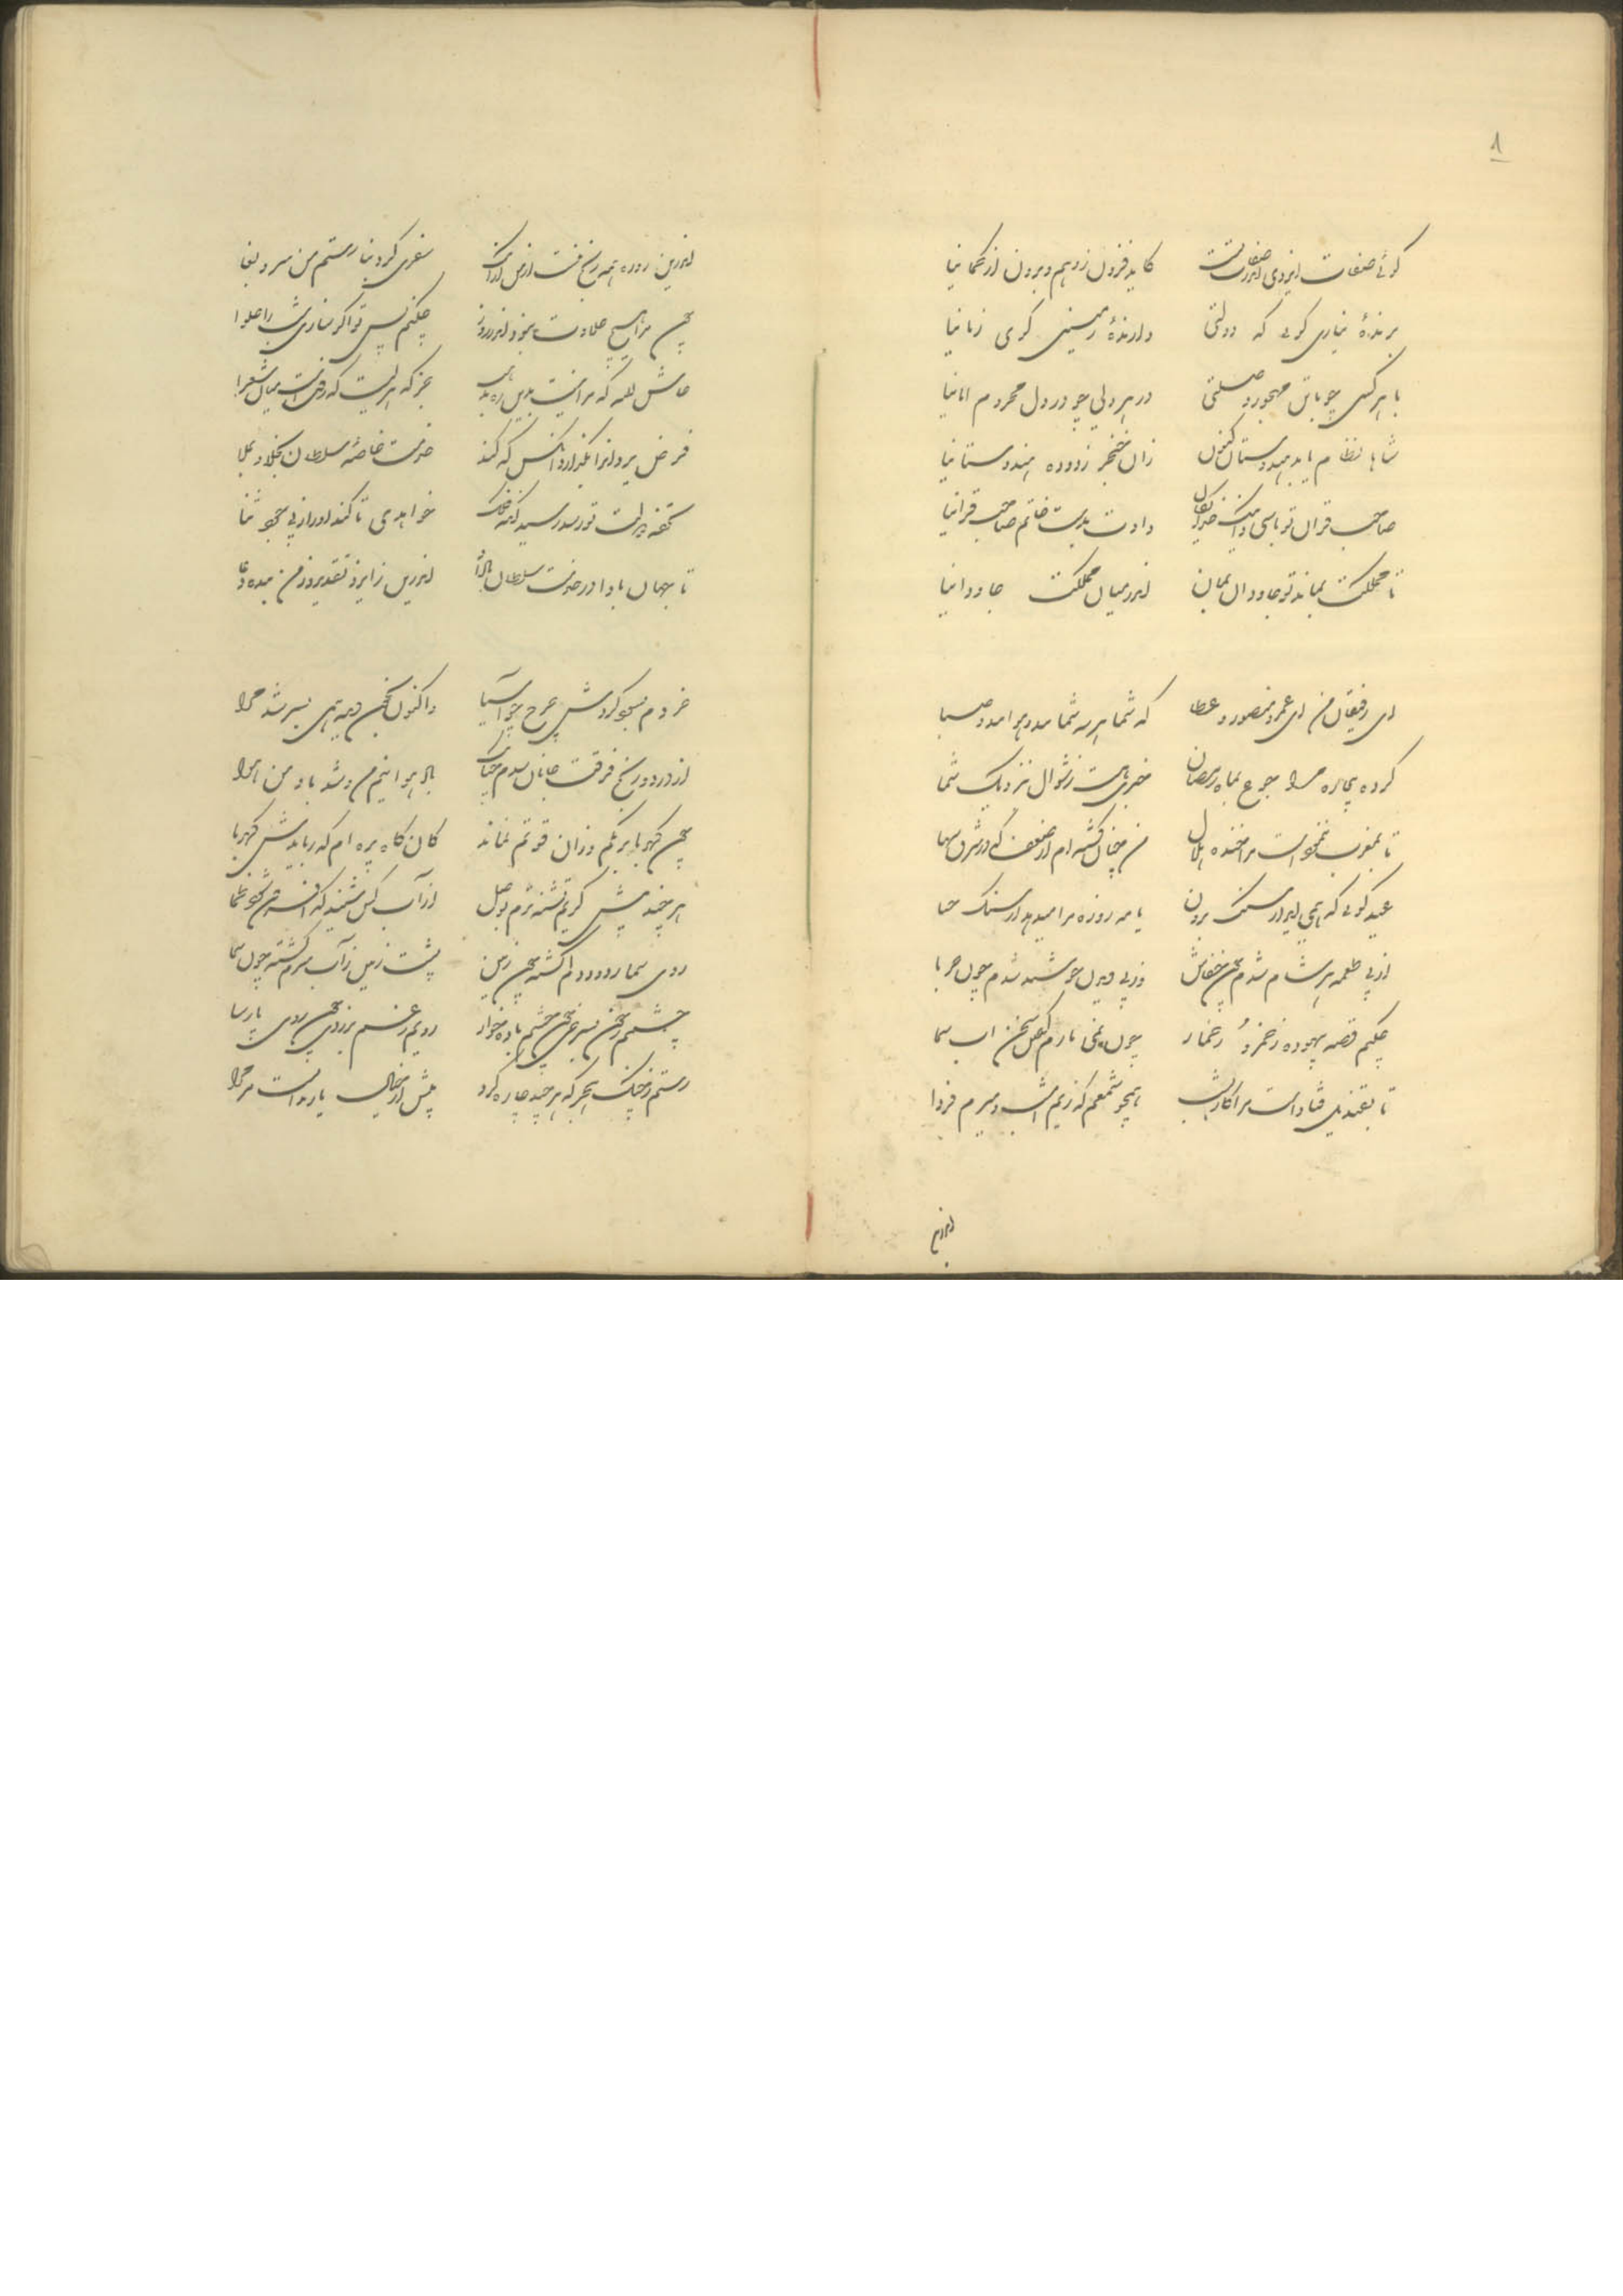 ۸
گوئی صفات ایزدی اندر صفات تست کاید فزون ز وهم و برون از گمانیا
برندهٔ نیازی گوئی که دولتی دارندهٔ زمینی گوی زمانیا
با هر کسی چو با تن مهجور وصلتی در هر دلی چو در دل محروم امانیا
شاها نظام یابد هندوستان کنون زان خنجر زدوده هندوستانیا
صاحب قران تو باشی و اینک خدایگان دادت بدست خاتم صاحب قرانیا
تا مملکت بماند تو جاودان بمان اندر میان مملکت جاودانیا
ای رفیقان من ای عمر و منصور و عطا که شما هر سه سمائید و هوائید و صبا
کرده بیچاره مرا جوع بماه رمضان خبری هست ز شوال نزدیک شما
تا بمغرب ننمودست مرا خنده هلال من چنان گشته ام از ضعف که در شرق سها
عید گوئی که همی آید از سنگ برون یا مه روزه مرا میدهد از سنگ صدا
از پی طعمه هر شام شدم چون خفاش وز پی دیدن خورشید شدم چون حربا
چکنم قصه بیهوده ز خمر و ز خمار چون نمی یارم گفتن سخن آب سما
تا بقندیل فتادست مرا کار بشب همچو شمعم که زیم امشب و میرم فردا
اندرین
اندرین روزه همه رنج منست از من از آنک سفری کرد نیارستم من سرو بقا
چون مرا هیچ حلاوت نبود اندر روز چکنم پس تو اگر سازی شب را حلوا
حاش لله که مرا نیست بدین ره مذهب جز که هزلیست که رفتست میان شعرا
فرض یزدانرا بگذارد آنکس که کند خدمت خاصهٔ سلطان بخلا و بملا
تا جهان بادا در خدمت سلطان بادا اندرین از ایزد تقدیر و ز من بنده دعا
خردم بسود گردش چرخ چو آسیا واکنون بچن دیبه همی بسر شد مرا
از درد و رنج فرقت جانان شدم چنانک باد هوا نیم من و شد باد من هوا
چون کهربا برنگم و زان قوتم نماند کان کاه پره ام که رباید ش کهربا
هر چند بیش گریم تشنه ترم بوصل از آب کس شنید که افزون شود ظما
روی سما ز دود دلم گشته چون زمین پشت زمین ز آب سرم گشته چون سما
چشمم ز خون بسرخی چون چشم باده خوار رویم ز غم بزردی چون روی پارسا
رستم ز چنگ هجر که هر چند چاره کرد پیش از خیال یار ندانست مر مرا